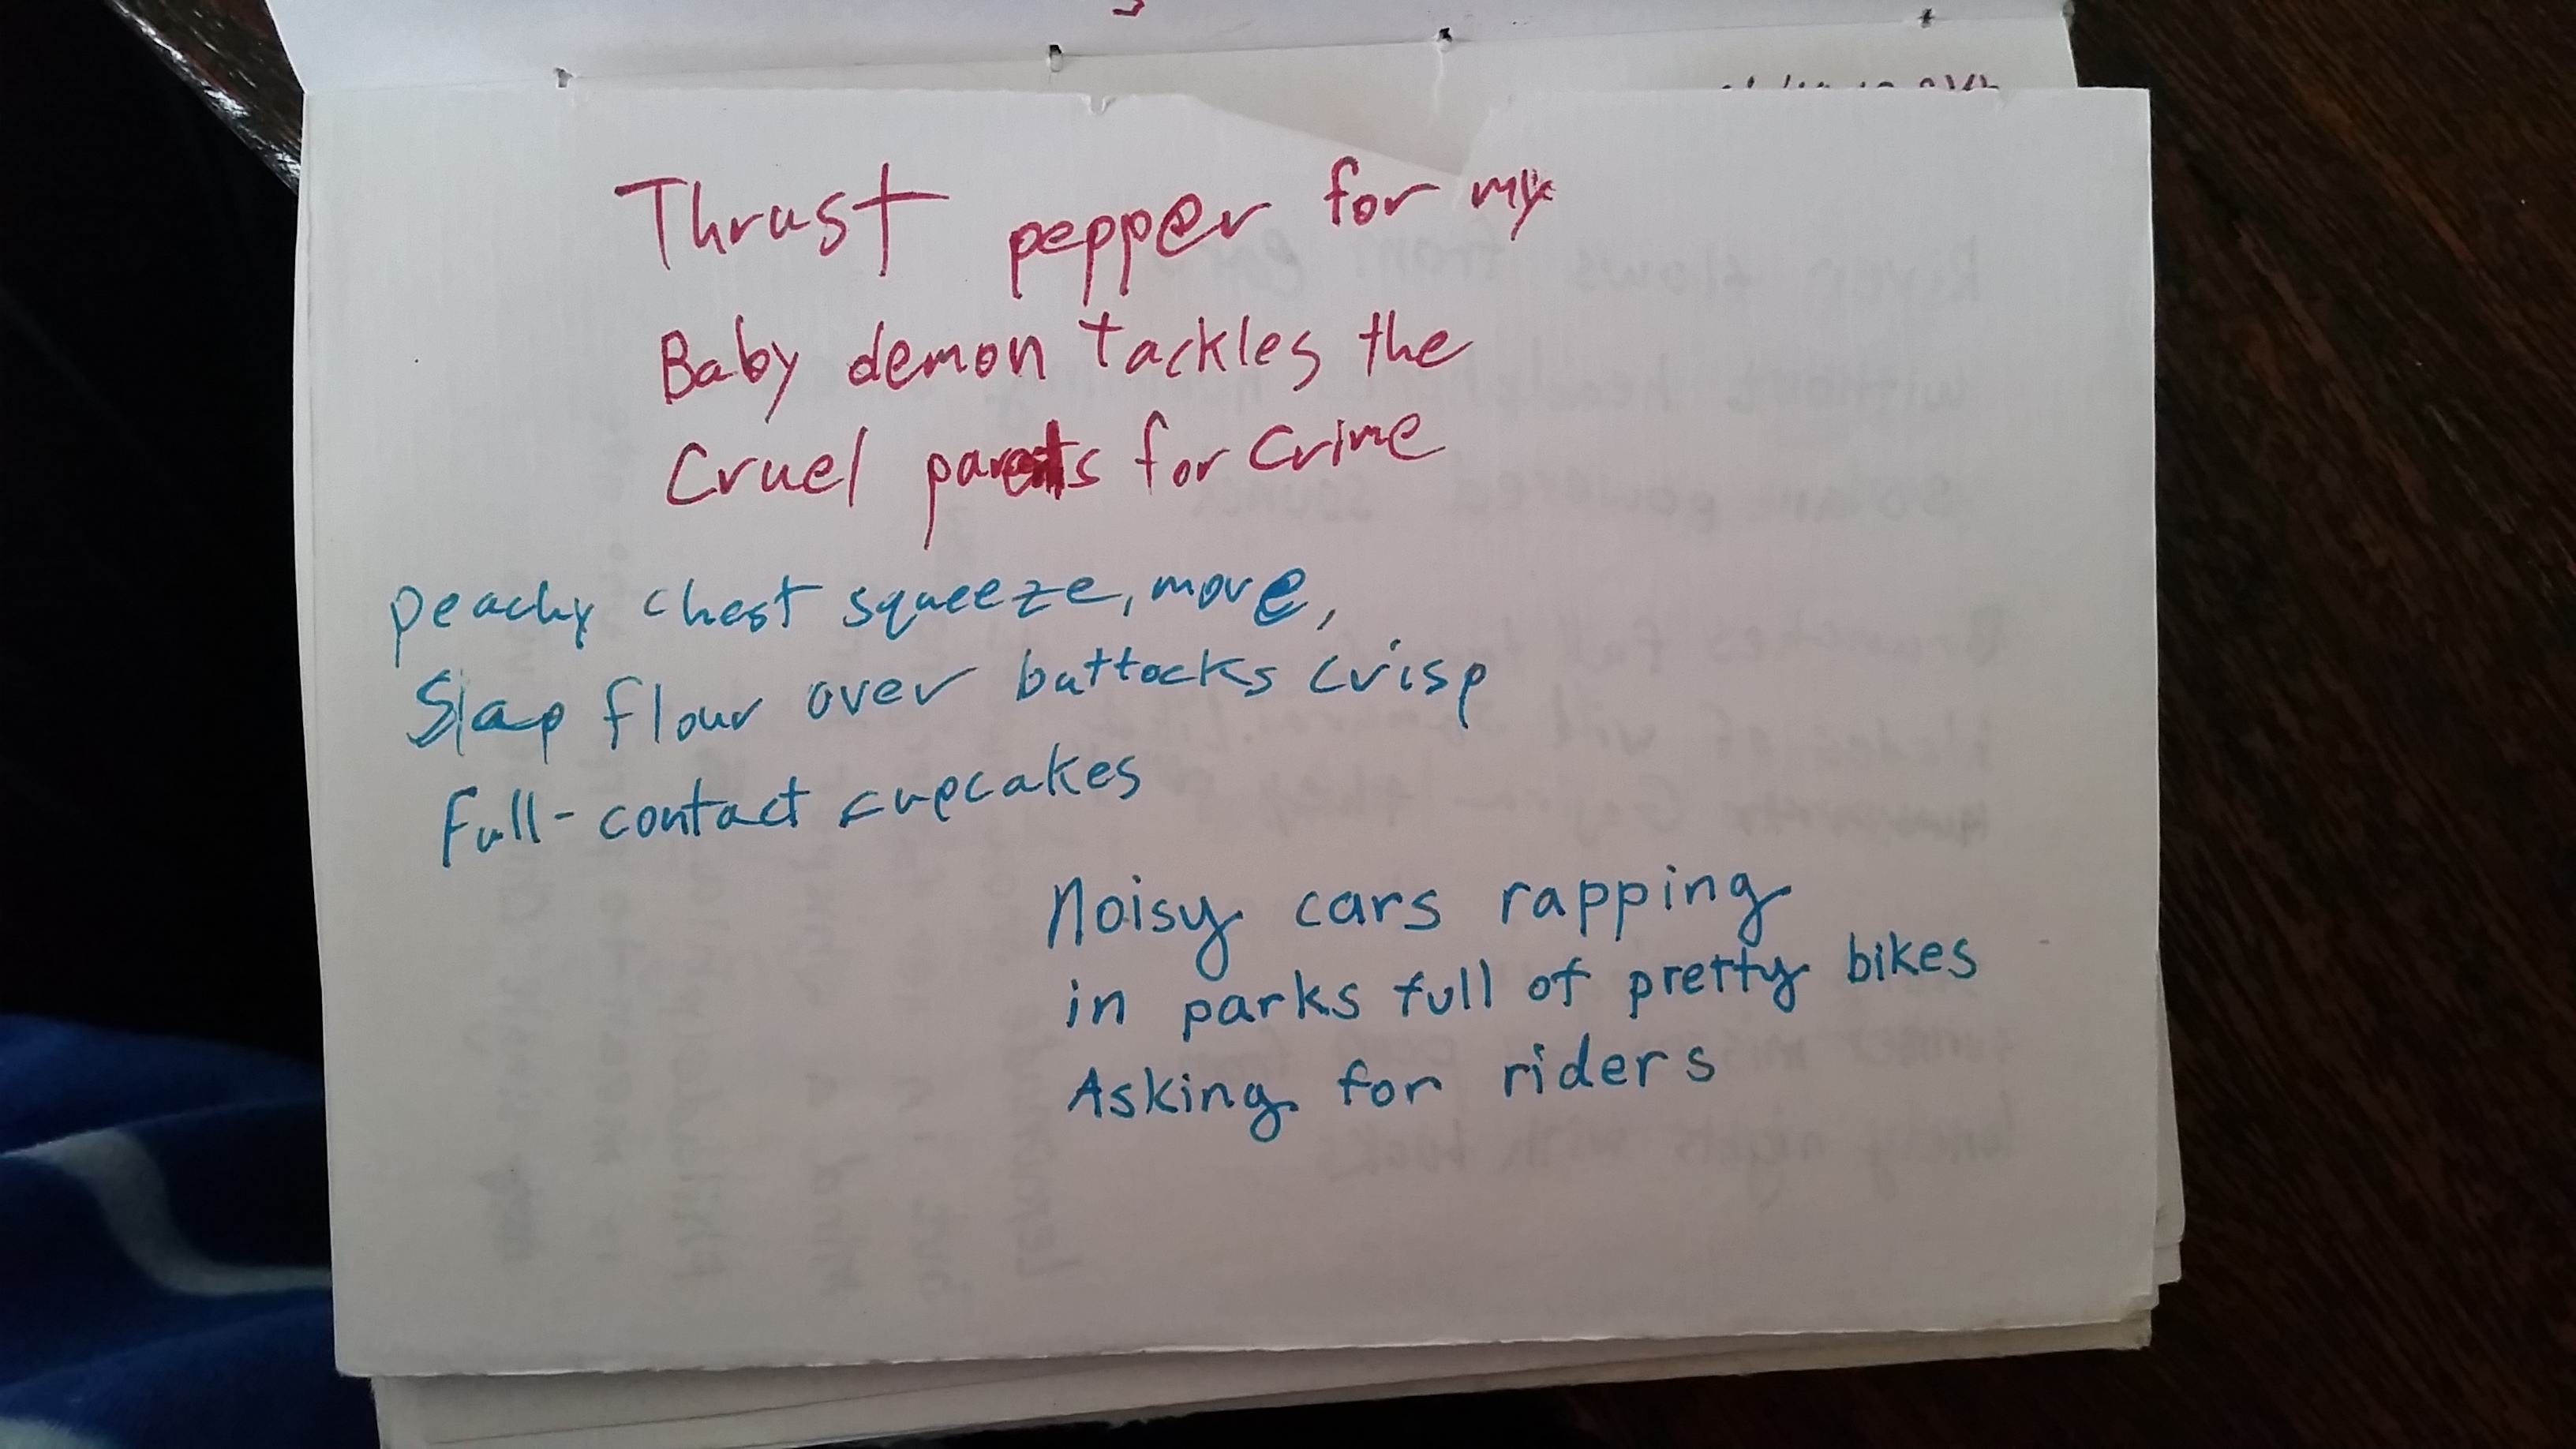 Thrust pepper for my
Baby demon tackles the
Cruel parets for crime
peachy chest squeeze, move,
Slap flour over buttocks crisp
Full-contact cupcakes
Noisy cars rapping
in parks full of pretty bikes
Asking for riders